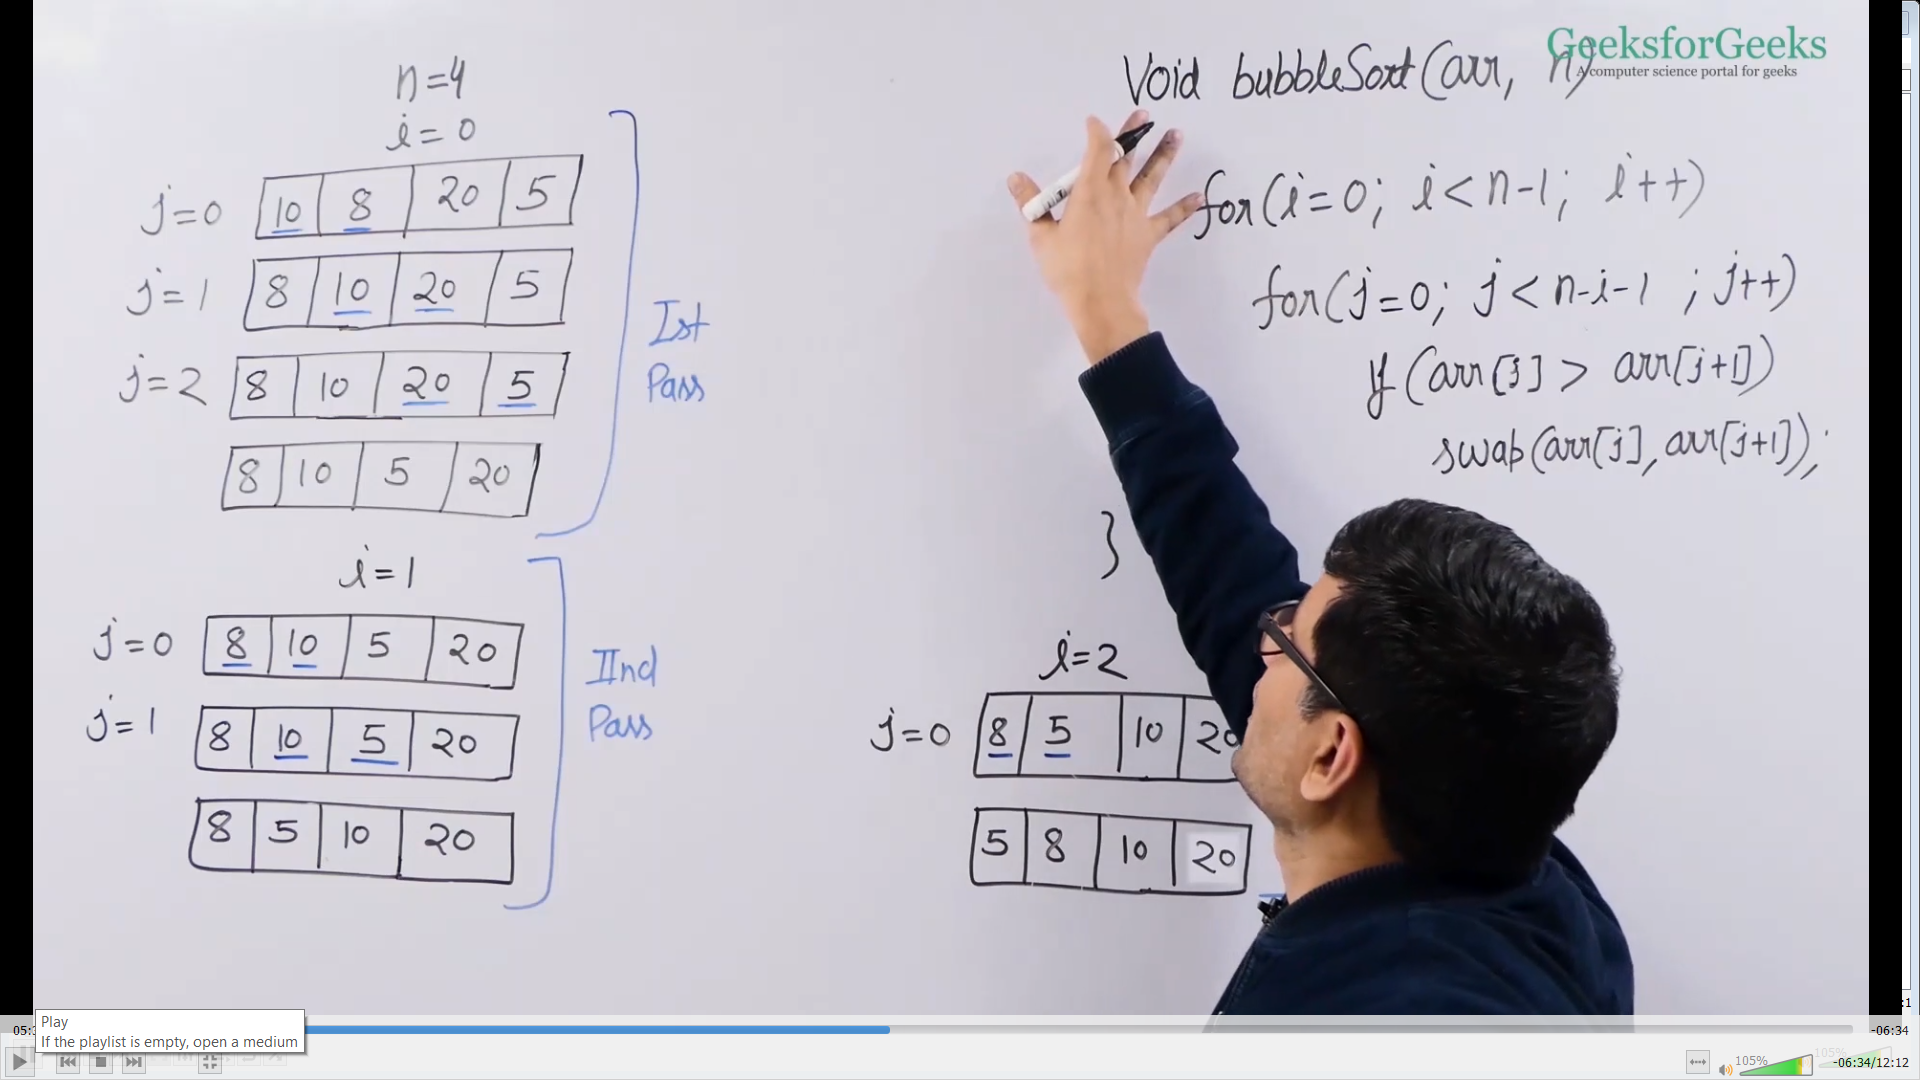 GeeksforGeeks
A computer science portal for geeks
n=4
i=0
j=0 10 8 20 5
j=1 8 10 20 5
j=2 8 10 20 5
8 10 5 20
Ist
Pass
i=1
j=0 8 10 5 20
j=1 8 10 5 20
8 5 10 20
IInd
Pass
Void bubbleSort(arr, n)
for(i=0; i<n-1; i++)
for(j=0; j<n-i-1 ; j++)
if (arr[j] > arr[j+1])
swap(arr[j], arr[j+1]);
}
i=2
j=0 8 5 10 20
5 8 10 20
Play
If the playlist is empty, open a medium
-06:34
105%
-06:34/12:12